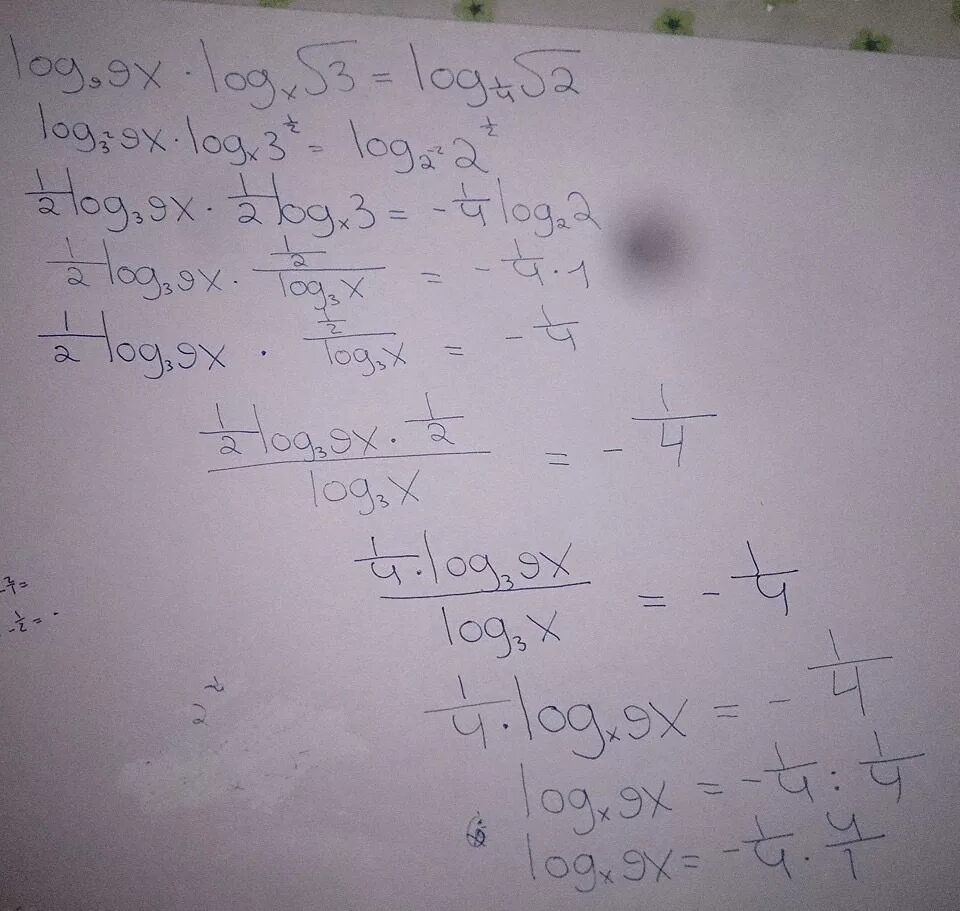 log₉9x · logₓ√3 = log_¼√2
log_3² 9x · logₓ3^½ = log_2⁻² 2^½
½log₃9x · ½logₓ3 = -¼log₂2
½log₃9x · ½/log₃x = -¼ · 1
½log₃9x · ½/log₃x = -¼
(½log₃9x · ½)/log₃x = -¼
(¼ · log₃9x)/log₃x = -¼
¼ · logₓ9x = -¼
logₓ9x = -¼ : ¼
logₓ9x = -¼ · 4/1